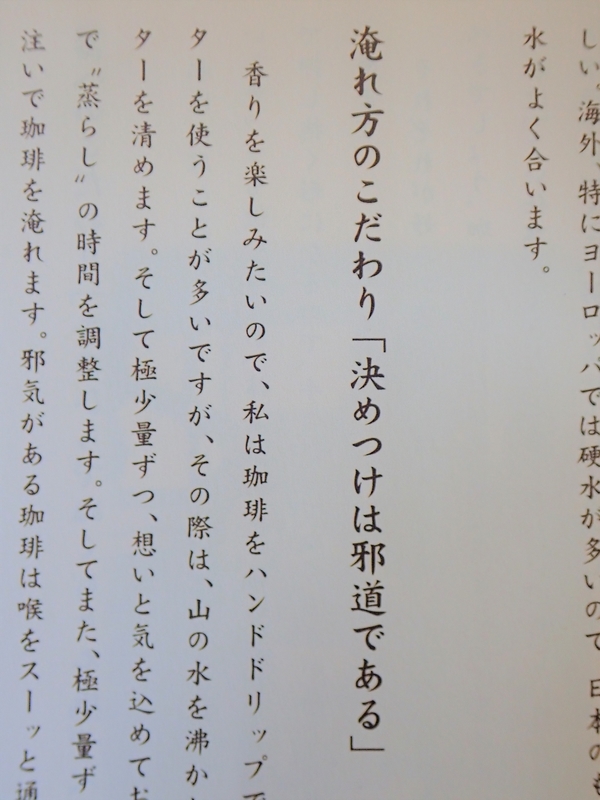 しい。海外、特にヨーロッパでは硬水が多いので、日本のも
水がよく合います。
淹れ方のこだわり「決めつけは邪道である」
香りを楽しみたいので、私は珈琲をハンドドリップで
ターを使うことが多いですが、その際は、山の水を沸か
ターを清めます。そして極少量ずつ、想いと気を込めてお
で〝蒸らし〟の時間を調整します。そしてまた、極少量ず
注いで珈琲を淹れます。邪気がある珈琲は喉をスーッと通